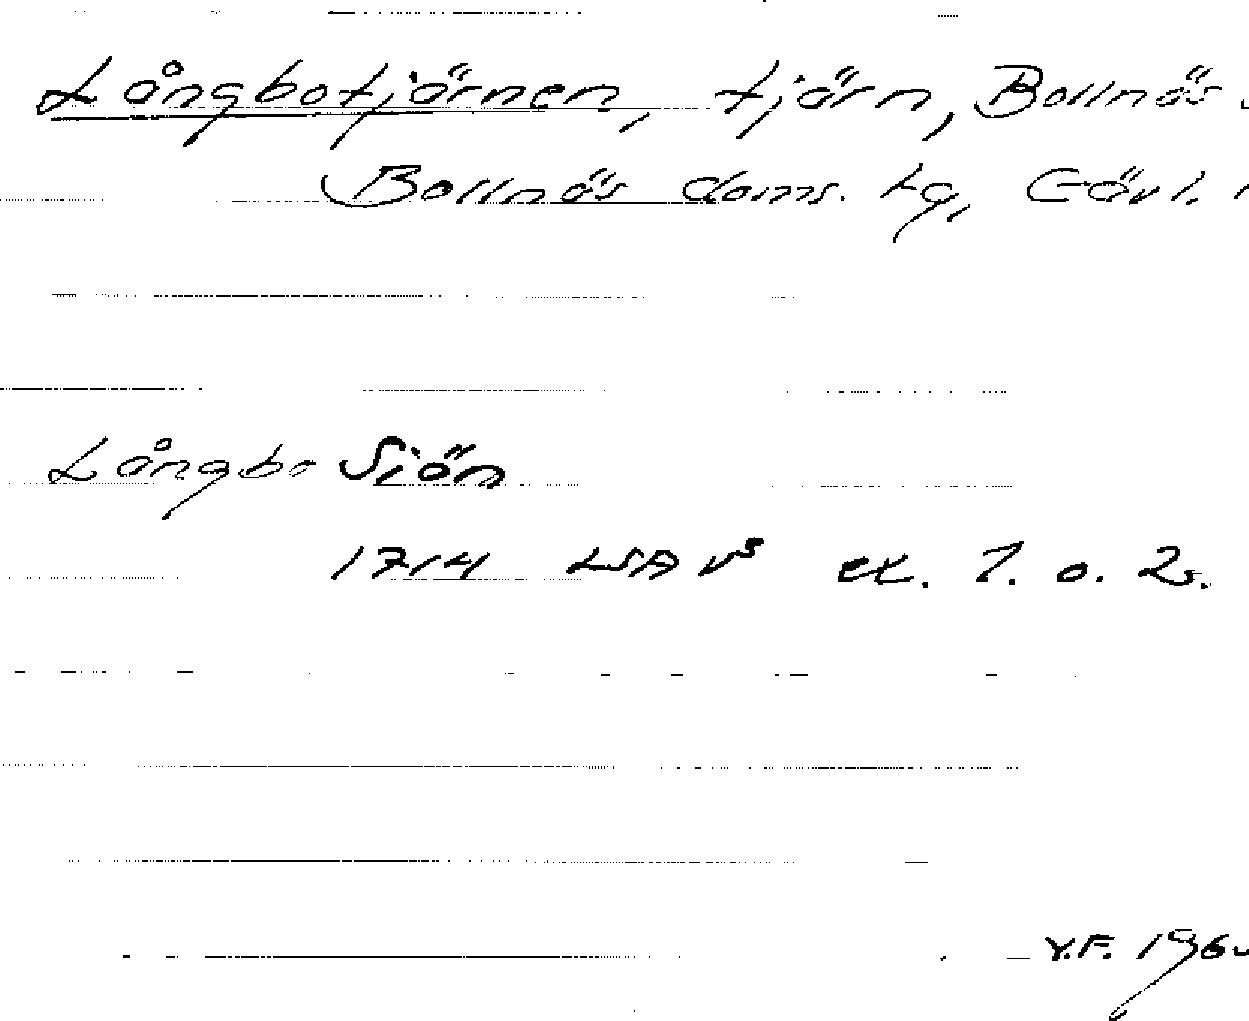 Långbotjärnen, tjärn, Bollnäs
Bollnäs doms. hg, Gävl.
Långbo Siön
1714 LSA V³ ex. 1. o. 2.
Y.F. 196